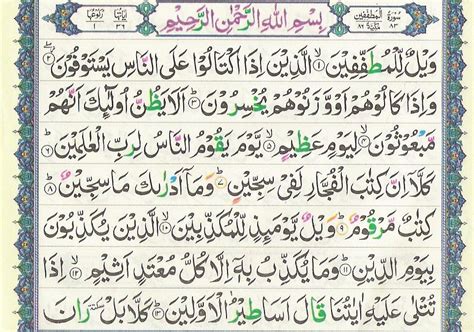 سُوْرَةُ الْمُطَفِّفِيْنَ
مَكِّيَّةٌ ٨٦ ٨٣
بِسْمِ اللّٰهِ الرَّحْمٰنِ الرَّحِيْمِ
اٰيَاتُهَا ٣٦
رُكُوْعُهَا ١
وَيْلٌ لِّلْمُطَفِّفِيْنَ ۙ﴿١﴾ الَّذِيْنَ اِذَا اكْتَالُوْا عَلَى النَّاسِ يَسْتَوْفُوْنَ ﴿٢﴾
وَاِذَا كَالُوْهُمْ اَوْ وَّزَنُوْهُمْ يُخْسِرُوْنَ ﴿٣﴾ اَلَا يَظُنُّ اُولٰٓئِكَ اَنَّهُمْ
مَّبْعُوْثُوْنَ ۙ﴿٤﴾ لِيَوْمٍ عَظِيْمٍ ۙ﴿٥﴾ يَّوْمَ يَقُوْمُ النَّاسُ لِرَبِّ الْعٰلَمِيْنَ ﴿٦﴾
كَلَّاۤ اِنَّ كِتٰبَ الْفُجَّارِ لَفِيْ سِجِّيْنٍ ﴿٧﴾ وَمَاۤ اَدْرٰىكَ مَا سِجِّيْنٌ ﴿٨﴾
كِتٰبٌ مَّرْقُوْمٌ ﴿٩﴾ وَيْلٌ يَّوْمَئِذٍ لِّلْمُكَذِّبِيْنَ ۙ﴿١٠﴾ الَّذِيْنَ يُكَذِّبُوْنَ
بِيَوْمِ الدِّيْنِ ﴿١١﴾ وَمَا يُكَذِّبُ بِهٖۤ اِلَّا كُلُّ مُعْتَدٍ اَثِيْمٍ ۙ﴿١٢﴾ اِذَا
تُتْلٰى عَلَيْهِ اٰيٰتُنَا قَالَ اَسَاطِيْرُ الْاَوَّلِيْنَ ﴿١٣﴾ كَلَّا بَلْ رَانَ